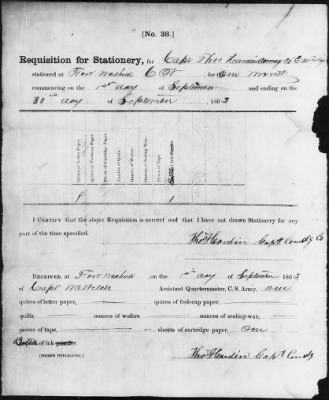 [No. 38.]
Requisition for Stationery, for Capt Theo Heardin Comdg Co
stationed at Fort Washita C N for One Month
commencing on the 1st day of September and ending on the
30th day of September 1863
Quires of Letter Paper.
Quires of Foolscap Paper.
Sheets of Cartridge Paper.
Number of Quills.
Ounces of Wafers.
Ounces of Sealing Wax.
Pieces of Tape.
Bottle Ink Powder.
1
I Certify that the above Requisition is correct and that I have not drawn Stationery for any
part of the time specified.
Capt Comdg Co
Received at Fort Washita on the 1st day of September 1863
of Capt Assistant Quartermaster, C. S. Army, one
quires of letter paper, quires of foolscap paper,
quills, ounces of wafers ounces of sealing-wax,
pieces of tape, sheets of cartridge paper, one
Bottle of ink powder.
(SIGNED DUPLICATES.)
Capt Comdg